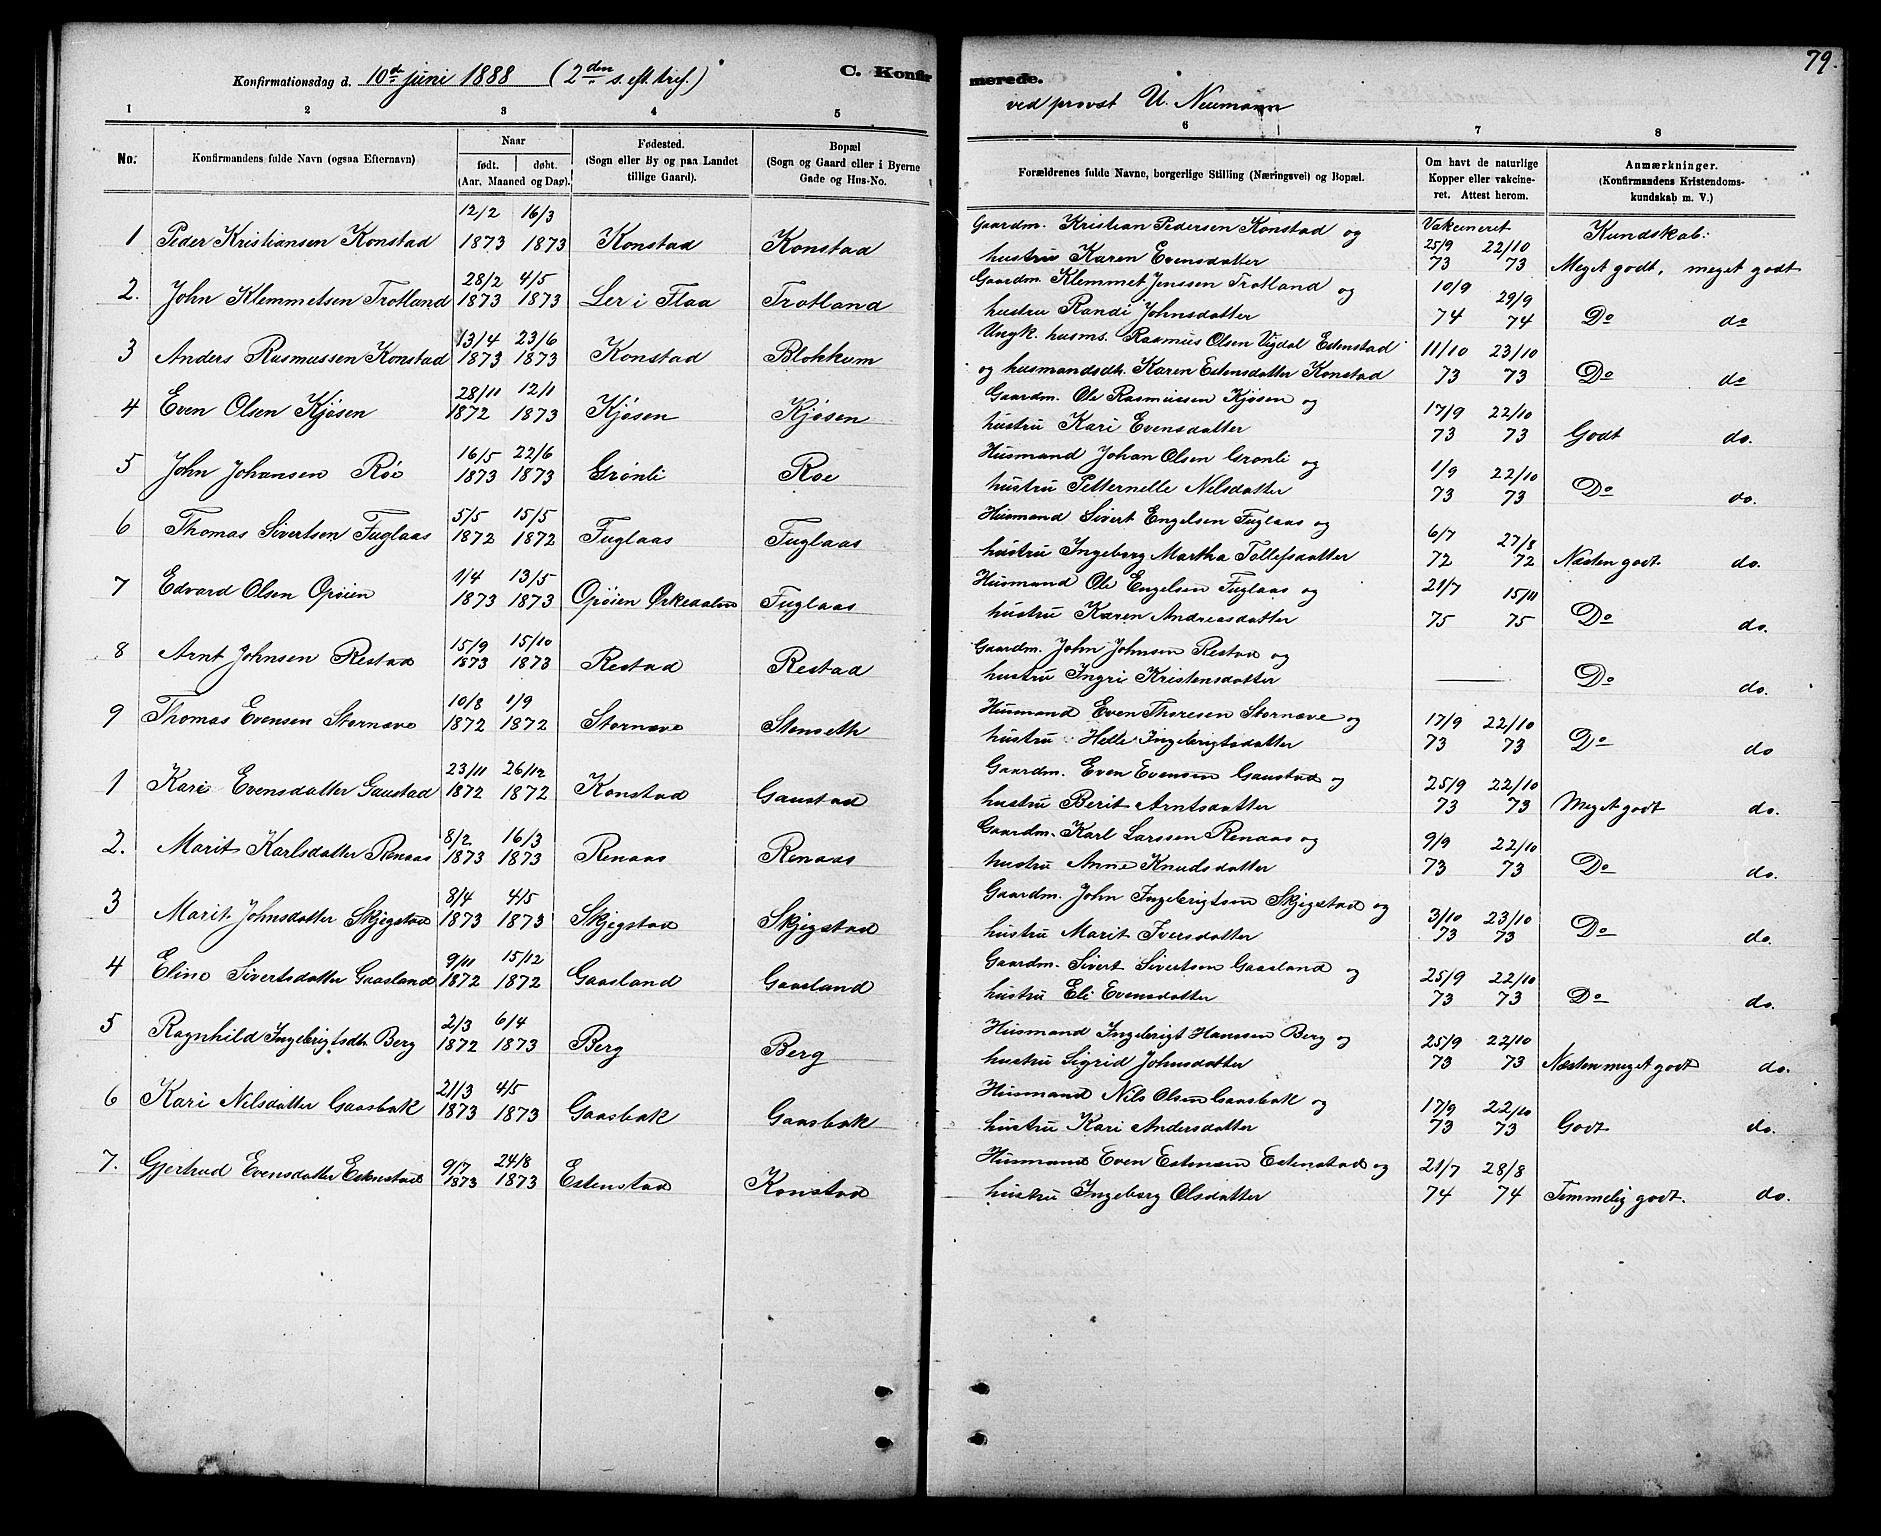 79.
Konfirmationsdag d. 10de juni 1888 (2den s. eft. tref.) C. Konfirmerede.
ved provst U. Neumann
1 2 3 4 5 6 7 8
No. Konfirmandens fulde Navn (ogsaa Efternavn) Naar født. døbt. (Aar, Maaned og Dag). Fødested. (Sogn eller By og paa Landet tillige Gaard). Bopæl (Sogn og Gaard eller i Byerne Gade og Hus-No. Forældrenes fulde Navne, borgerlige Stilling (Næringsvei) og Bopæl. Om havt de naturlige Kopper eller vakcineret. Attest herom. Anmærkninger. (Konfirmandens Kristendomskundskab m. V.)
12/2 16/3 Gaardm. Kristian Pedersen Konstad og Vakcineret Kundskab:
1 Peder Kristiansen Konstad 1873 1873 Konstad Konstad hustru Karen Evensdatter 25/9 73 22/10 73 Meget godt, meget godt
28/2 4/5 Gaardm. Klemmet Jenssen Trotland og 10/9 29/9
2. John Klemmetsen Trotland 1873 1873 Ler i Flaa Trotland hustru Randi Johnsdatter 74 74 Do do
13/4 23/6 Ungk. husms. Rasmus Olsen Vigdal Estenstad 11/10 23/10
3 Anders Rasmussen Konstad 1873 1873 Konstad Blokkum og husmandsdt. Karen Estensdatter Konstad 73 73 Do do
28/11 12/1 Gaardm. Ole Rasmussen Kjøsen og 17/9 22/10
4 Even Olsen Kjøsen 1872 1873 Kjøsen Kjøsen hustru Kari Evensdatter 73 73 Godt do.
16/5 22/6 Husmand Johan Olsen Grønli og 1/9 22/10
5 John Johansen Röe 1873 1873 Grønli Roe hustru Petternelle Nilsdatter 73 73 Do do.
5/5 15/5 Husmand Sivert Engelsen Fuglaas og 6/7 27/8
6 Thomas Sivertsen Fuglaas 1872 1872 Fuglaas Fuglaas hustru Ingeborg Martha Tollefsdatter 72 72 Næsten godt do.
1/4 13/5 Husmand Ole Engelsen Fuglaas og 21/7 15/11
7 Edvard Olsen Opøien 1873 1873 Opøien Ørkedalen Fuglaas hustru Karen Andreasdatter 75 75 Do do.
15/9 15/10 Gaardm. John Johnsen Restad og
8 Arnt Johnsen Restad 1873 1873 Restad Restad hustru Ingri Kristensdatter — Do do.
10/8 1/9 Husmand Even Thoresen Stornæve og 17/9 22/10
9 Thomas Evensen Stornæve 1872 1872 Stornæve Stenseth hustru Helle Ingebrigtsdatter 73 73 Do do
23/11 26/12 Gaardm. Even Evensen Gaustad og 25/9 22/10
1 Kari Evensdatter Gaustad 1872 1872 Konstad Gaustad hustru Berit Arntsdatter 73 73 Meget godt do.
8/2 16/3 Gaardm. Karl Larssen Renaas og 9/9 22/10
2. Marit Karlsdatter Renaas 1873 1873 Renaas Renaas hustru Anne Knudsdatter 73 73 Do do.
8/4 4/5 Gaardm. John Ingebrigtsen Skjegstad og 3/10 23/10
3 Marit Johnsdatter Skjegstad 1873 1873 Skjegstad Skjegstad hustru Marit Iversdatter 73 73 Do do.
9/11 15/12 Gaardm. Sivert Sivertsen Gaasland og 25/9 22/10
4 Eline Sivertsdatter Gaasland 1872 1872 Gaasland Gaasland hustru Eli Evensdatter 73 73 Do do.
2/3 6/4 Husmand Ingebrigt Hanssen Berg og 25/9 22/10
5 Ragnhild Ingebrigtsdt. Berg 1872 1873 Berg Berg hustru Sigrid Johnsdatter 73 73 Næsten meget godt do.
21/3 4/5 Husmand Nils Olsen Gaasbak og 17/9 22/10
6 Kari Nilsdatter Gaasbak 1873 1873 Gaasbak Gaasbak hustru Kari Andersdatter 73 73 Godt do.
9/7 24/8 Husmand Even Estensen Estenstad og 21/7 28/8
7. Gjertrud Evensdatter Estenstad 1873 1873 Estenstad Konstad hustru Ingeborg Olsdatter 74 74 Temmelig godt. do.